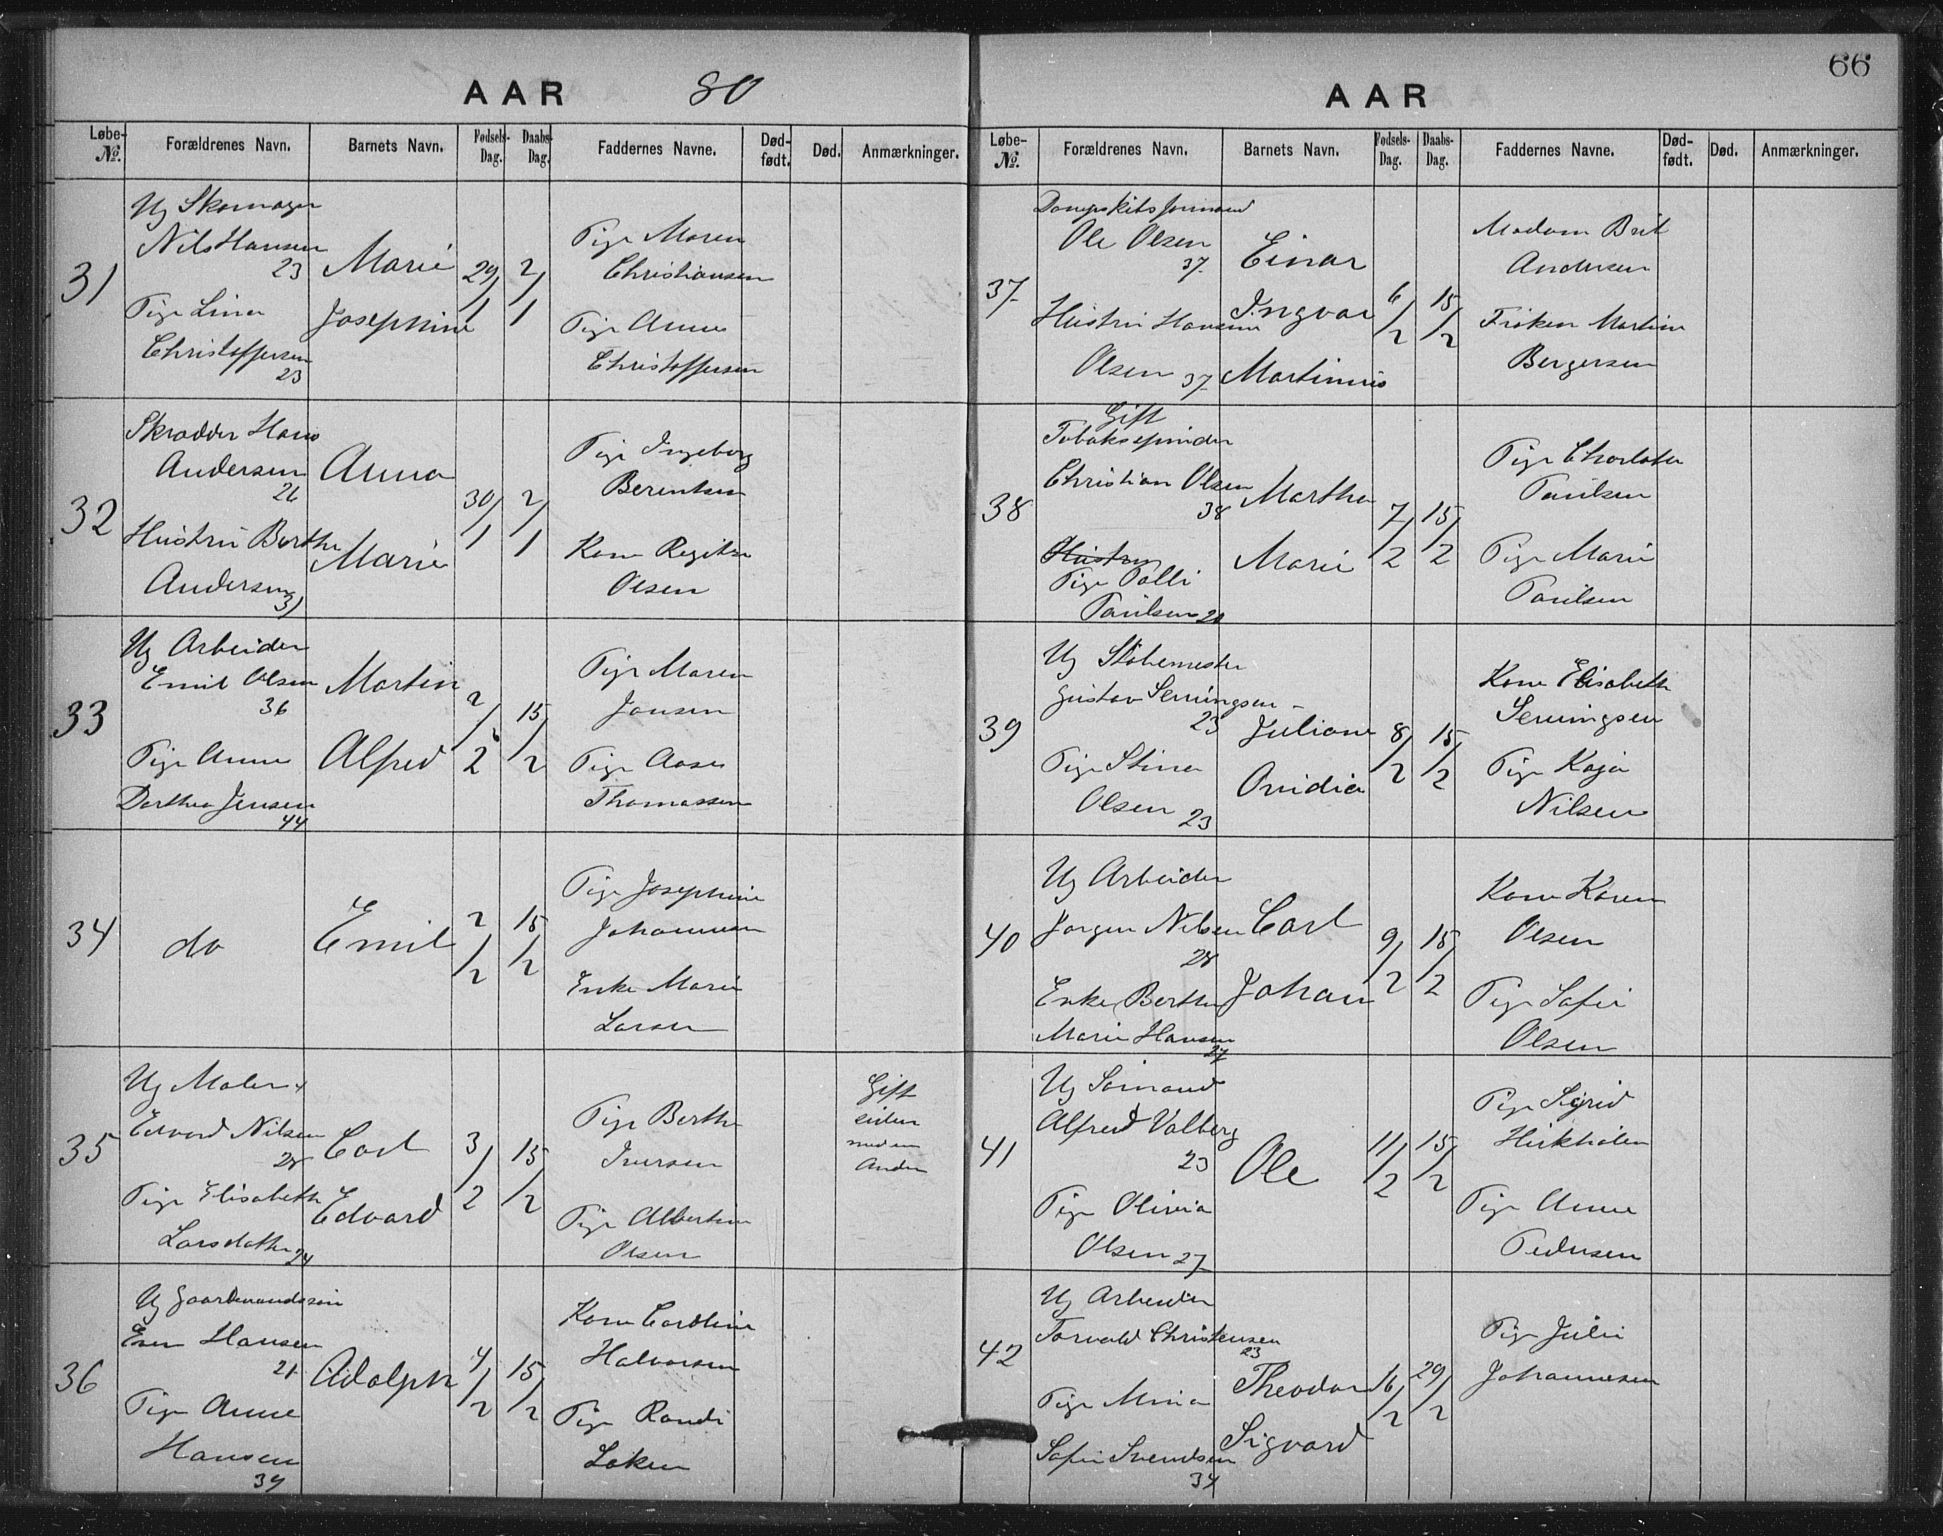 AAR 80
Løbe-No. Forældrenes Navn. Barnets Navn. Fødsels-Dag. Daabs-Dag. Faddernes Navne. Død-født. Død. Anmærkninger.
31
Ug Skomager
Nils Hansen
23
Pige Lina
Christoffersen
23
Marie
Josephine
29/1
2/1
Pige Maren
Christiansen
Pige Anne
Christoffersen
32
Skrædder Hans
Andersen
26
Hustru Berthe
Andersen 31
Anna
Marie
30/1
2/1
Pige Ingeborg
Berentsen
Kone Regitze
Olsen
33
Ug Arbeider
Emil Olsen
36
Pige Anne
Dorthea Jensen
44
Martin
Alfred
2/2
15/2
Pige Maren
Jansen
Pige Aase
Thomassen
34
do
Emil
2/2
15/2
Pige Josephine
Johannesen
Enke Marie
Larsen
35
Ug Maler
Edvard Nilsen
28
Pige Elisabeth
Larsdatter 24
Carl
Edvard
3/2
15/2
Pige Berthe
Iversen
Pige Albertine
Olsen
Gift
siden
med en
Anden
36
Ug Gaardmandssøn
Even Hansen
21
Pige Anne
Hansen
34
Adolph
4/2
15/2
Kone Caroline
Halvorsen
Pige Randi
Løken
66
AAR
Løbe-No. Forældrenes Navn. Barnets Navn. Fødsels-Dag. Daabs-Dag. Faddernes Navne. Død-født. Død. Anmærkninger.
37
Ole Olsen
37
Hustru Hansine
Olsen 37
Einar
Ingvar
Martinius
6/2
15/2
Madam Brit
Andersen
Frøken Martine
Bergersen
38
Gift
Tobakspinder
Christian Olsen
38
Hustru
Pige Palli
Paulsen 20
Martha
Marie
7/2
15/2
Pige Charlotte
Paulsen
Pige Marie
Paulsen
39
Ug Støbemester
Gustav Semingsen
23
Pige Stina
Olsen 23
Juliane
Ovidia
8/2
15/2
Kone Elisabeth
Semingsen
Pige Kaja
Nilsen
40
Ug Arbeider
Jørgen Nilsen
28
Enke Berthe
Marie Hansen
27
Carl
Johan
9/2
15/2
Kone Karen
Olsen
Pige Sofie
Olsen
41
Ug Sømand
Alfred Valberg
23
Pige Olivia
Olsen 27
Ole
11/2
15/2
Pige Sigrid
Pige Anne
Pedersen
42
Ug Arbeider
Torvald Christensen
23
Pige Mina
Sofie Svendsen
34
Theodor
Sigvard
16/2
29/2
Pige Julie
Johannesen